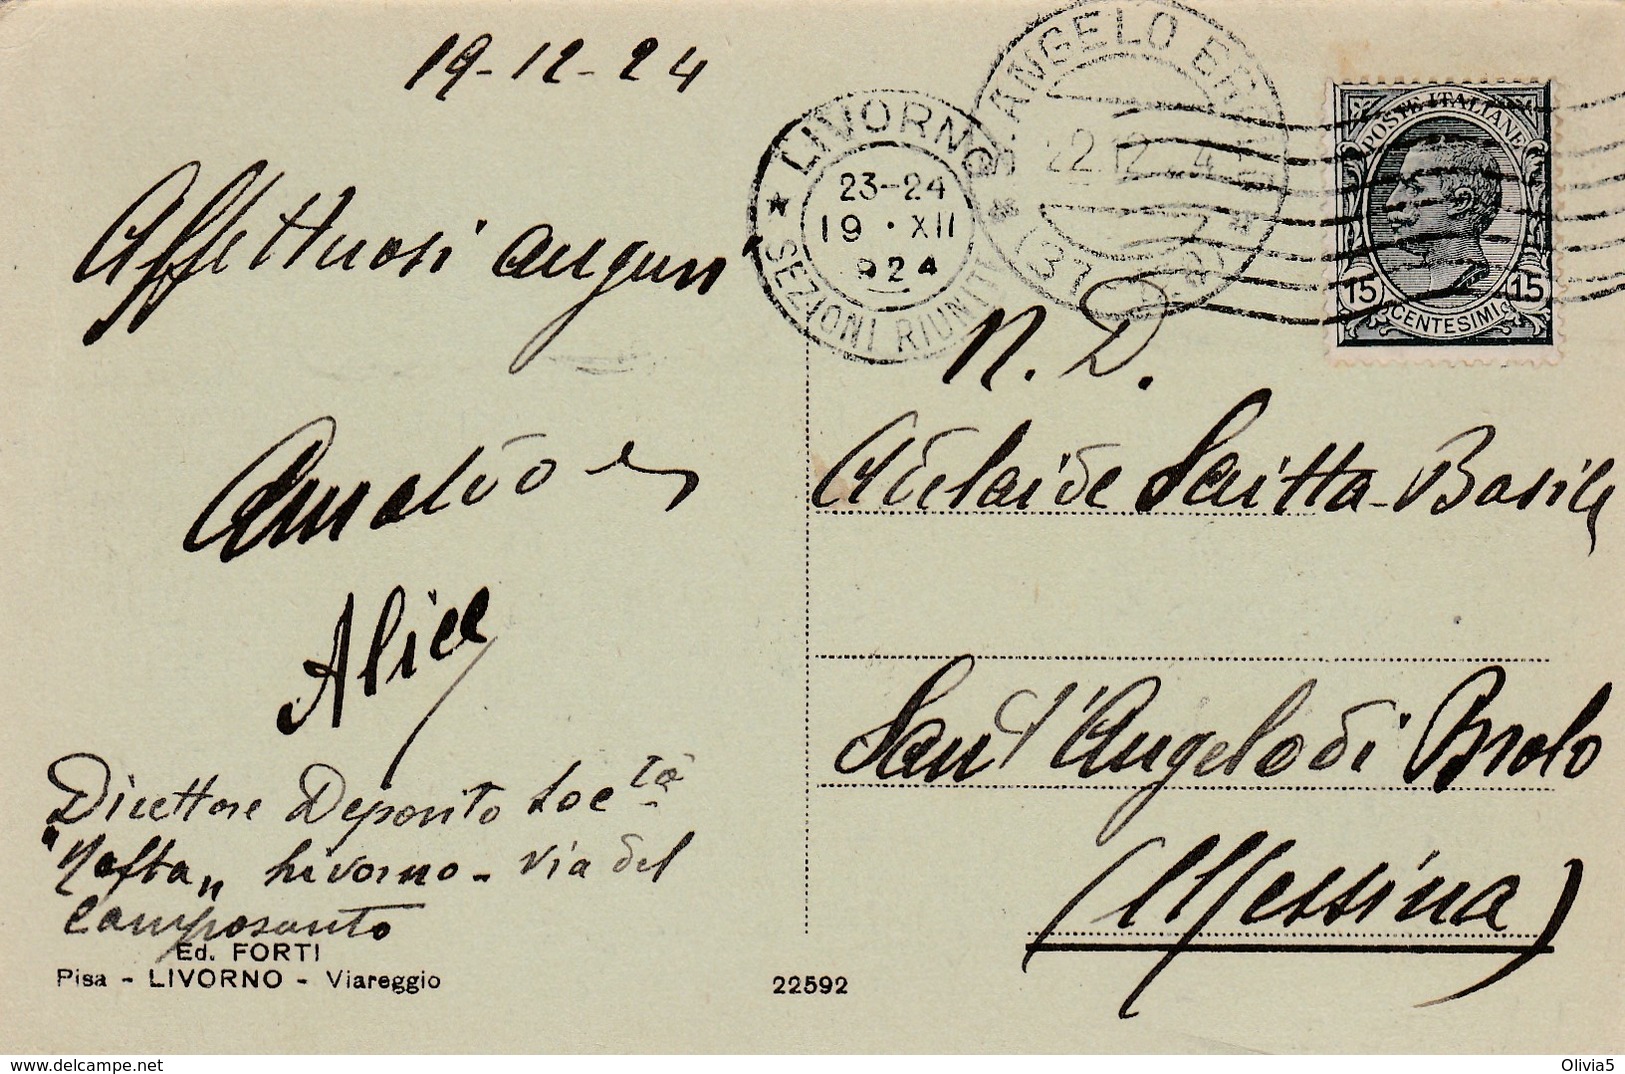 19-12-24
Affettuosi auguri
Amaldo e
Alice
Direttore Deposito Soc.tà
"Nafta" Livorno - Via del
Camposanto
Ed. FORTI
Pisa - LIVORNO - Viareggio
22592
LIVORNO
23-24
19 · XII
924
SEZIONI RIUNITE
S. ANGELO
22.12.24
POSTE ITALIANE
15 15
CENTESIMI
N. D.
Adelaide Scitta-Basile
Sant'Angelo di Brolo
(Messina)
delcampe.net
Olivia5